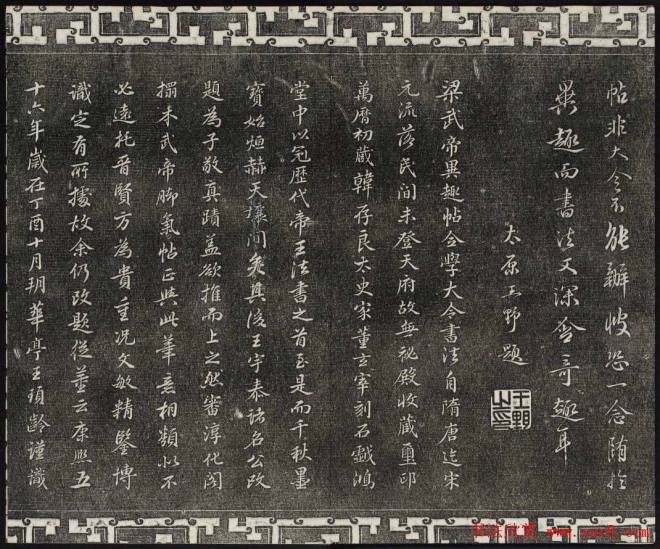 帖非大令不能辦㤄恐一念隨於
異趣而書法又深含奇趣耳
太原王野題
王野之印
梁武帝異趣帖全學大令書法自隋唐迄宋
元流落民間未登天府故無祕殿收藏璽印
萬曆初藏韓存良太史家董玄宰刻石戲鴻
堂中以冠歷代帝王法書之首至是而千秋墨
寶始烜赫天壤間矣其後王宇泰諸名公改
題為子敬真蹟蓋欲推而上之然審淳化閣
搨本武帝脚氣帖正與此筆意相類似不
必遠托晉賢方為貴重況文敏精鑒博
識定有所據故余仍改題從董云康熙五
十六年歲在丁酉十月朔華亭王頊齡謹識
书法欣赏